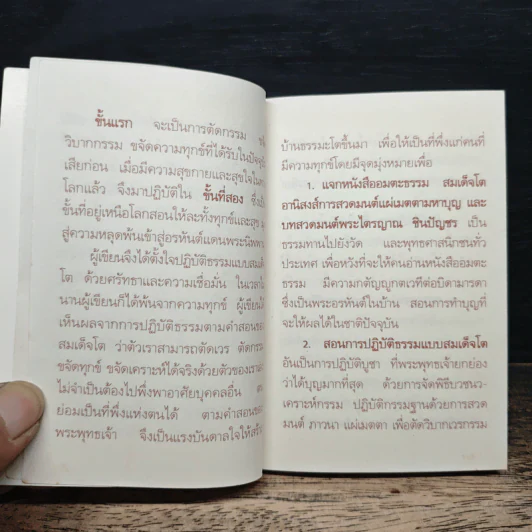 ขั้นแรก จะเป็นการตัดกรรม
วิบากกรรม ขจัดความทุกข์ที่ได้รับในปัจจุ
เสียก่อน เมื่อมีความสุขกายและสุขใจใน
โลกแล้ว จึงมาปฏิบัติใน ขั้นที่สอง ซึ่งเป็
ขั้นที่อยู่เหนือโลกสอนให้ละทั้งทุกข์และสุข
สู่ความหลุดพ้นเข้าสู่อรหันต์แดนพระนิพพาน
ผู้เขียนจึงได้ตั้งใจปฏิบัติธรรมแบบสมเด็
โต ด้วยศรัทธาและความเชื่อมั่น ในเวลา
นานผู้เขียนก็ได้พ้นจากความทุกข์ ผู้เขียน
เห็นผลจากการปฏิบัติธรรมตามคำสอนของ
สมเด็จโต ว่าตัวเราสามารถตัดเวร ตัดกรรม
ขจัดทุกข์ ขจัดเคราะห์ได้จริงด้วยตัวของเรา
ไม่จำเป็นต้องไปพึ่งพาอาศัยบุคคลอื่น ตน
ย่อมเป็นที่พึ่งแห่งตนได้ ตามคำสอนของ
พระพุทธเจ้า จึงเป็นแรงบันดาลใจให้สร้
บ้านธรรมะโตขึ้นมา เพื่อให้เป็นที่พึ่งแก่คนที่
มีความทุกข์โดยมีจุดมุ่งหมายเพื่อ
1. แจกหนังสืออมตะธรรม สมเด็จโต
อานิสงส์การสวดมนต์แผ่เมตตามหาบุญ และ
บทสวดมนต์พระไตรญาณ ชินบัญชร เป็น
ธรรมทานไปยังวัด และพุทธศาสนิกชนทั่ว
ประเทศ เพื่อหวังที่จะให้คนอ่านหนังสืออมตะ
ธรรม มีความกตัญญูกตเวทีต่อบิดามารดา
ซึ่งเป็นพระอรหันต์ในบ้าน สอนการทำบุญที่
จะให้ผลได้ในชาติปัจจุบัน
2. สอนการปฏิบัติธรรมแบบสมเด็จโต
อันเป็นการปฏิบัติบูชา ที่พระพุทธเจ้ายกย่อง
ว่าได้บุญมากที่สุด ด้วยการจัดพิธีบวชนว-
เคราะห์กรรม ปฏิบัติกรรมฐานด้วยการสวด
มนต์ ภาวนา แผ่เมตตา เพื่อตัดวิบากเวรกรรม